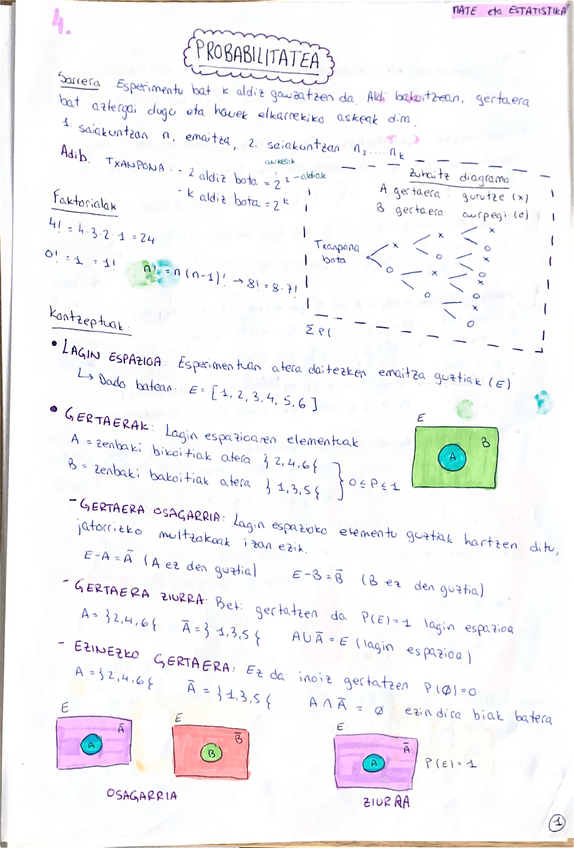 4.
MATE eta ESTATISTIKA
PROBABILITATEA
Sarrera Esperimentu bat k aldiz gauzatzen da. Aldi bakoitzean, gertaera
bat aztergai dugu eta hauek elkarrekiko askeak dira.
1. saiakuntzan n, emaitza, 2. saiakuntzan n₂....nₖ
Adib. TXANPONA: - 2 aldiz bota = 2² -aldiak
aukerak
- k aldiz bota = 2ᵏ
Zuhaitz diagrama
A gertaera : gurutze (x)
B gertaera : aurpegi (o)
Txanpona
bota
x
o
x
o
x
o
x
o
x
o
x
o
x
o
ΣP(
Faktorialak
4! = 4·3·2·1 = 24
0! = 1 = 1!
n! = n(n-1)! → 8! = 8·7!
Kontzeptuak:
• LAGIN ESPAZIOA: Esperimentuan atera daitezken emaitza guztiak (E)
↳ Dado batean: E = [1, 2, 3, 4, 5, 6]
• GERTAERAK: Lagin espazioaren elementuak
A = zenbaki bikoitiak atera }2,4,6{
B = zenbaki bakoitiak atera }1,3,5{
0 ≤ P ≤ 1
E
B
A
- GERTAERA OSAGARRIA: Lagin espazioko elementu guztiak hartzen ditu,
jatorrizko multzokoak izan ezik.
E-A = Ā (A ez den guztia) E-B = B̄ (B ez den guztia)
- GERTAERA ZIURRA: Beti gertatzen da P(E)=1 lagin espazioa
A = }2,4,6{ Ā = }1,3,5{ A∪Ā = E (lagin espazioa)
- EZINEZKO GERTAERA: Ez da inoiz gertatzen P(∅)=0
A = }2,4,6{ Ā = }1,3,5{ A∩Ā = ∅ ezin dira biak batera
E
Ā
A
E
B̄
B
E
Ā
A
P(E)=1
OSAGARRIA
ZIURRA
1